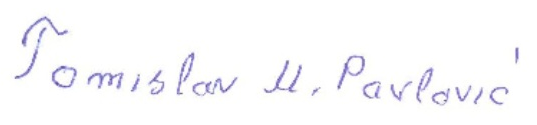 Tomislav M. Pavlović